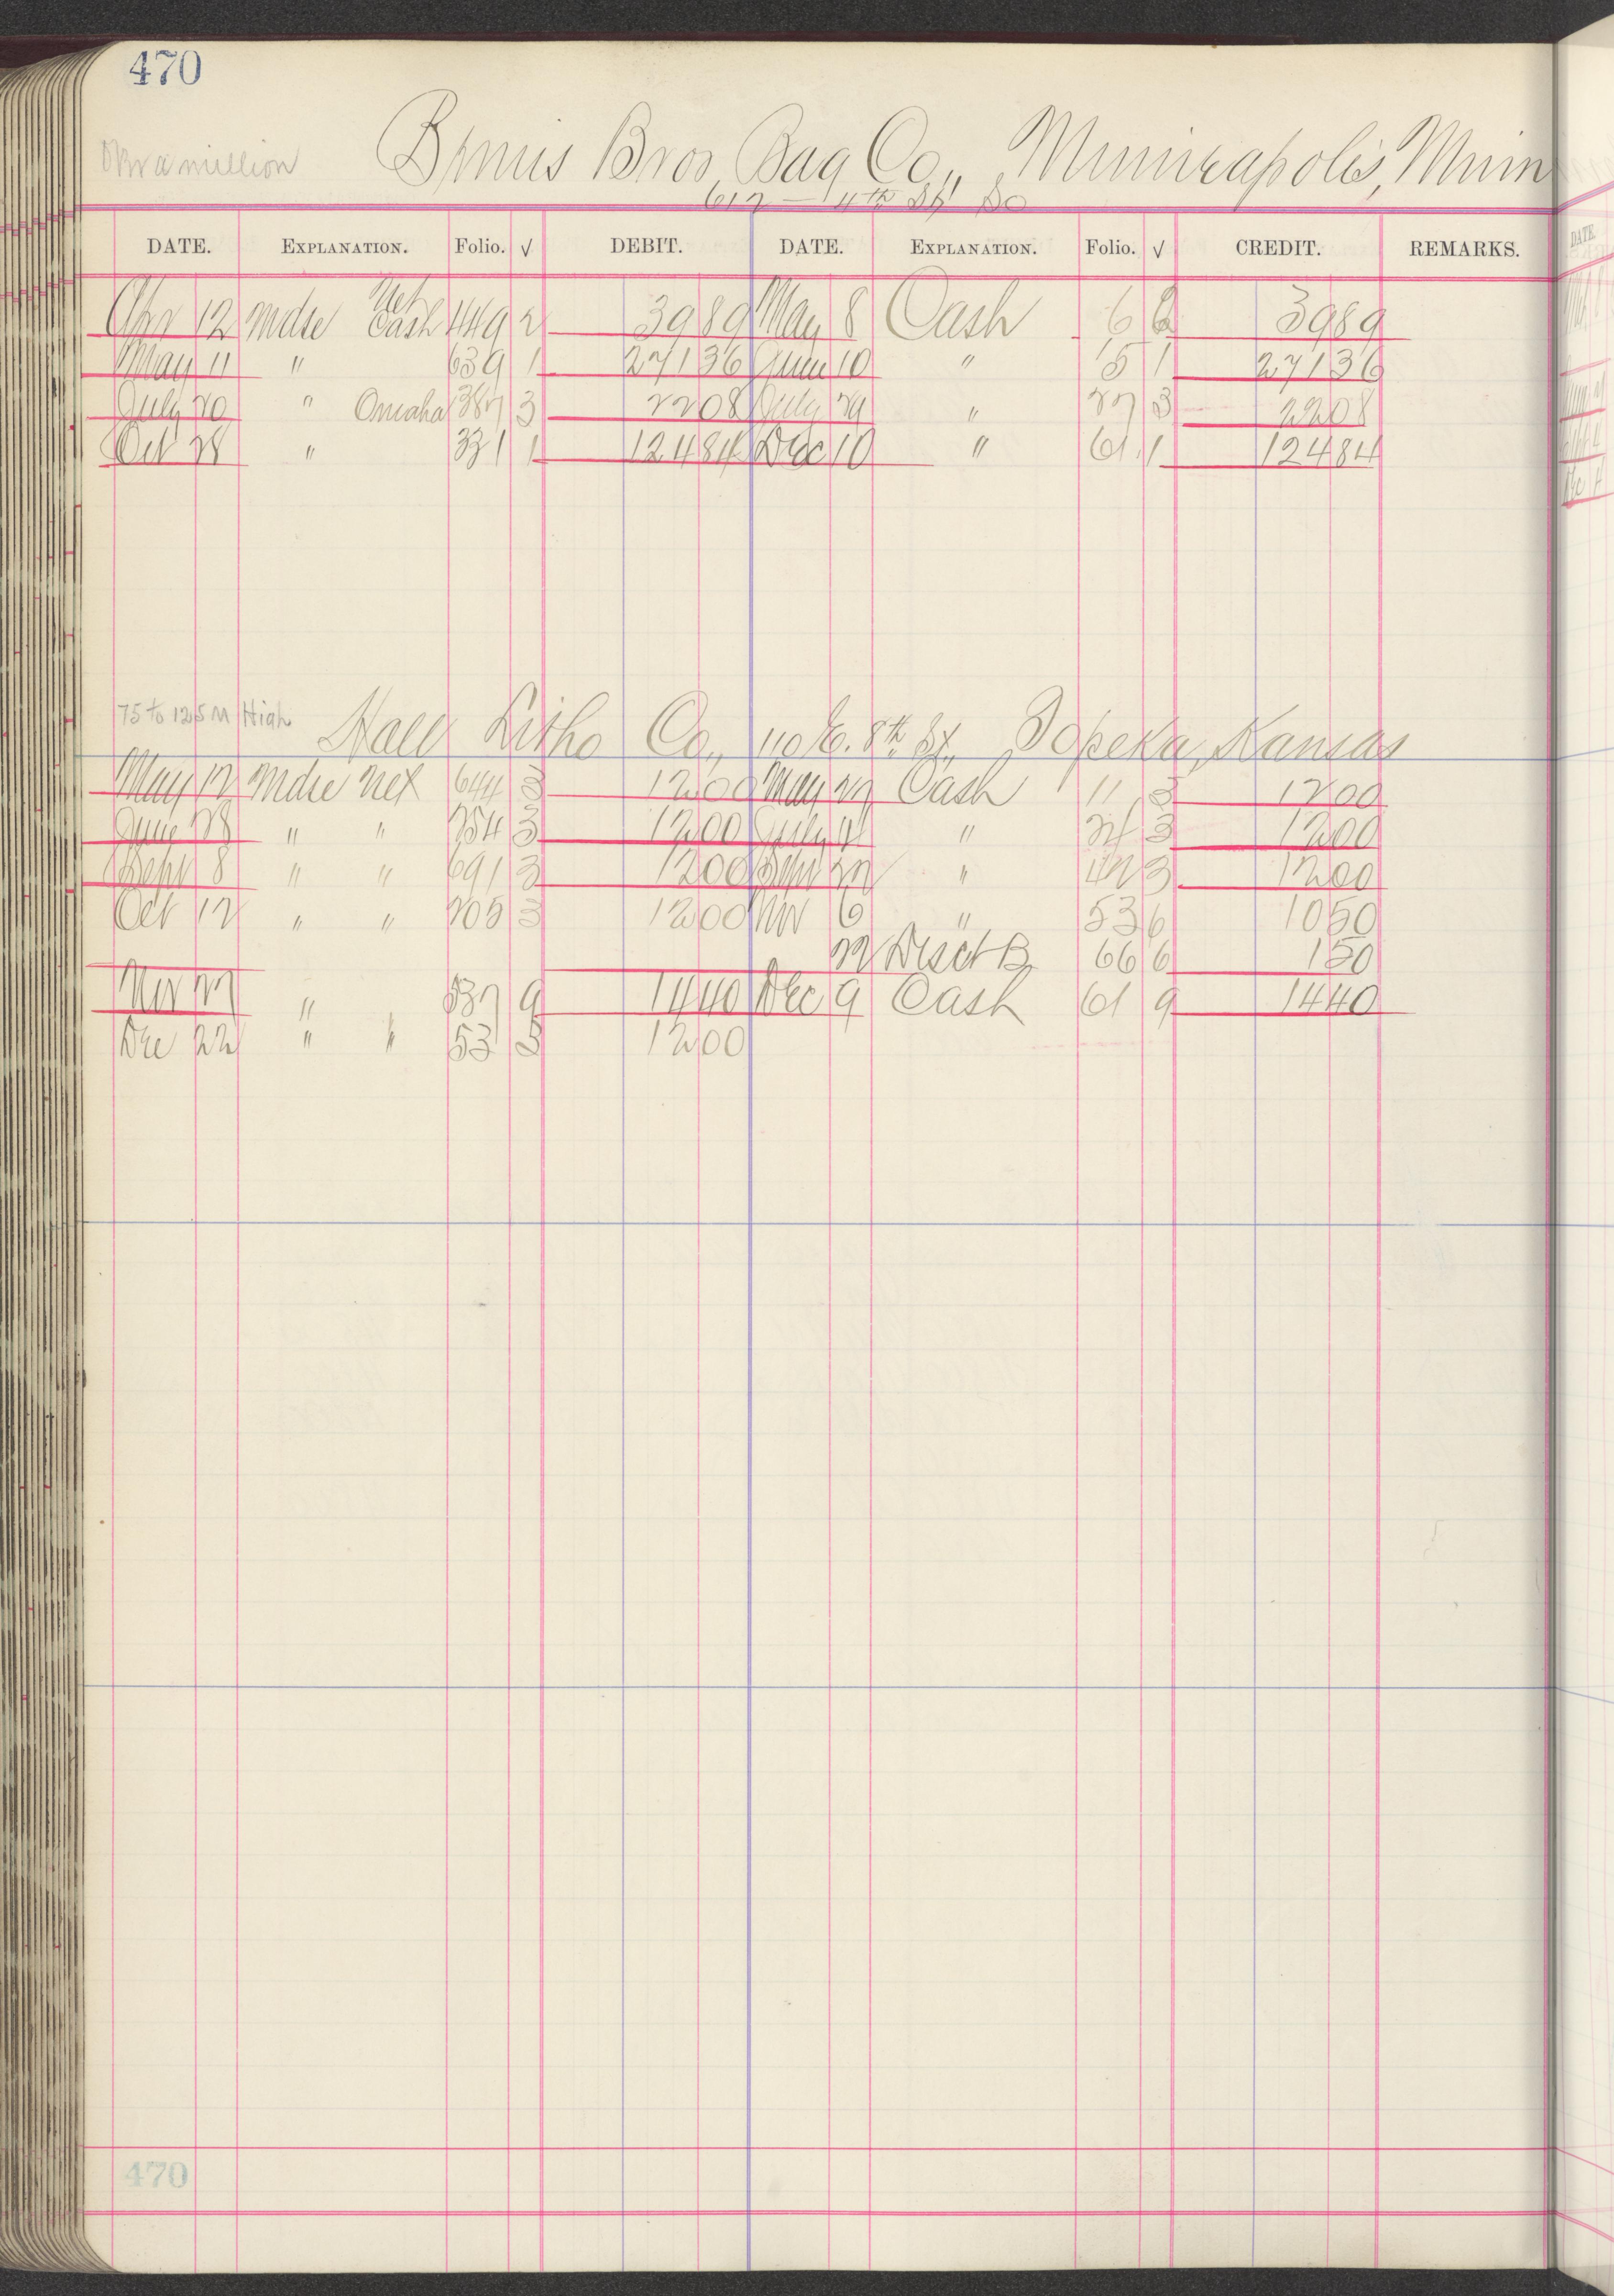 470
Over a million Bemis Bros Bag Co., Minneapolis, Minn
612 — 4th St So
DATE. EXPLANATION. Folio. √ DEBIT. DATE. EXPLANATION. Folio. √ CREDIT. REMARKS.
Apr 12 Mdse Net Cash 449 2 3989 May 8 Cash 6 2 3989
May 11 " 639 1 27136 June 10 " 15 1 27136
July 20 " Omaha 387 3 2208 July 29 " 27 3 2208
Oct 28 " 331 1 12484 Dec 10 " 61 1 12484
75 to 125 M High Hall Litho Co., 110 E. 8th St., Topeka, Kansas
May 12 Mdse net 644 3 1200 May 27 Cash 11 3 1200
June 28 " " 254 3 1200 July " 3 1200
Sept 8 " " 691 3 1200 Sept 27 " 42 3 1200
Oct 12 " " 705 3 1200 Nov 6 " 53 6 1050
27 Disct B 66 6 150
Nov 27 " 537 9 1440 Dec 9 Cash 61 9 1440
Dec 22 " " 53 3 1200
470